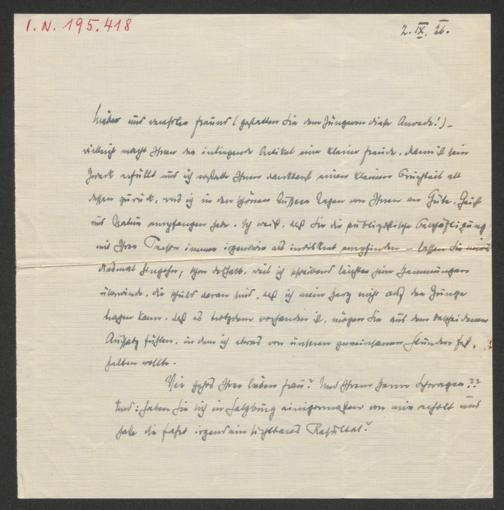 I. N. 195.418
2. IX. 26.
Lieber und verehrter Freund (gestatten Sie dem Jüngeren diese Anrede!) –
vielleicht macht Ihnen der inliegende Artikel eine kleine Freude, dann ist sein
Zweck erfüllt und ich erstatte Ihnen dankbarst einen kleinen Bruchteil all
dessen zurück, was ich in den schönen Tagen von Ihnen an Güte, Geist
und Natur empfangen habe. Ich weiß, daß Sie die publizistische Beschäftigung
mit Ihrer Person immer irgendwie als indiskret empfinden – lassen Sie mir's
diesmal hingehn, schon deshalb, weil ich schreibend leichter jene Hemmungen
überwinde, die schuld daran sind, daß ich mein Herz nicht auf der Zunge
tragen kann. Daß es trotzdem vorhanden ist, mögen Sie aus dem bescheidenen
Aufsatz fühlen, in dem ich etwas von unseren gemeinsamen Stunden fest-
halten wollte.
Wie geht's Ihrer lieben Frau? Und Ihrem Magen??
Und: haben Sie sich in Salzburg einigermaßen von mir erholt und
hatte die Fahrt irgend ein sichtbares Resultat?